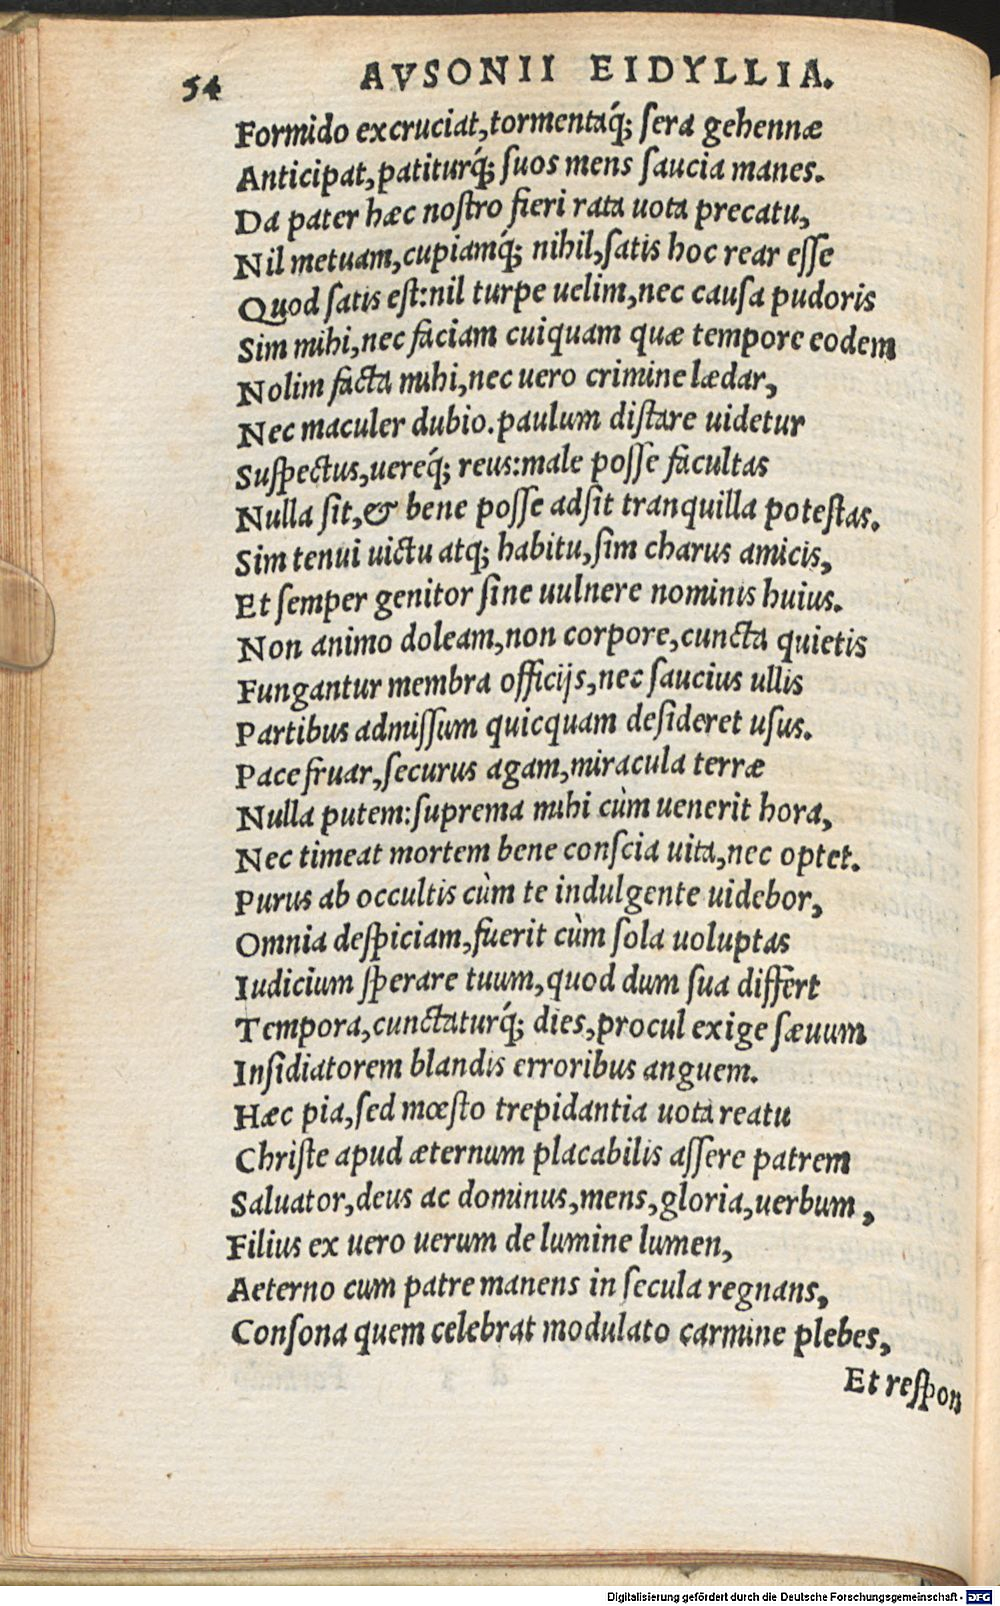 54 AVSONII EIDYLLIA.
Formido excruciat, tormentaq́; sera gehennæ
Anticipat, patiturq́; suos mens saucia manes.
Da pater hæc nostro fieri rata uota precatu,
Nil metuam, cupiamq́; nihil, satis hoc rear esse
Quod satis est: nil turpe uelim, nec causa pudoris
Sim mihi, nec faciam cuiquam quæ tempore eodem
Nolim facta mihi, nec uero crimine lædar,
Nec maculer dubio. paulum distare uidetur
Suspectus, uereq́; reus: male posse facultas
Nulla sit, & bene posse adsit tranquilla potestas.
Sim tenui uictu atq; habitu, sim charus amicis,
Et semper genitor sine uulnere nominis huius.
Non animo doleam, non corpore, cuncta quietis
Fungantur membra officijs, nec saucius ullis
Partibus admissum quicquam desideret usus.
Pace fruar, securus agam, miracula terræ
Nulla putem: suprema mihi cùm uenerit hora,
Nec timeat mortem bene conscia uita, nec optet.
Purus ab occultis cùm te indulgente uidebor,
Omnia despiciam, fuerit cùm sola uoluptas
Iudicium sperare tuum, quod dum sua differt
Tempora, cunctaturq́; dies, procul exige sæuum
Insidiatorem blandis erroribus anguem.
Hæc pia, sed mœsto trepidantia uota reatu
Christe apud æternum placabilis assere patrem
Saluator, deus ac dominus, mens, gloria, uerbum,
Filius ex uero uerum de lumine lumen,
Aeterno cum patre manens in secula regnans,
Consona quem celebrat modulato carmine plebes,
Et respon
Digitalisierung gefördert durch die Deutsche Forschungsgemeinschaft - DFG